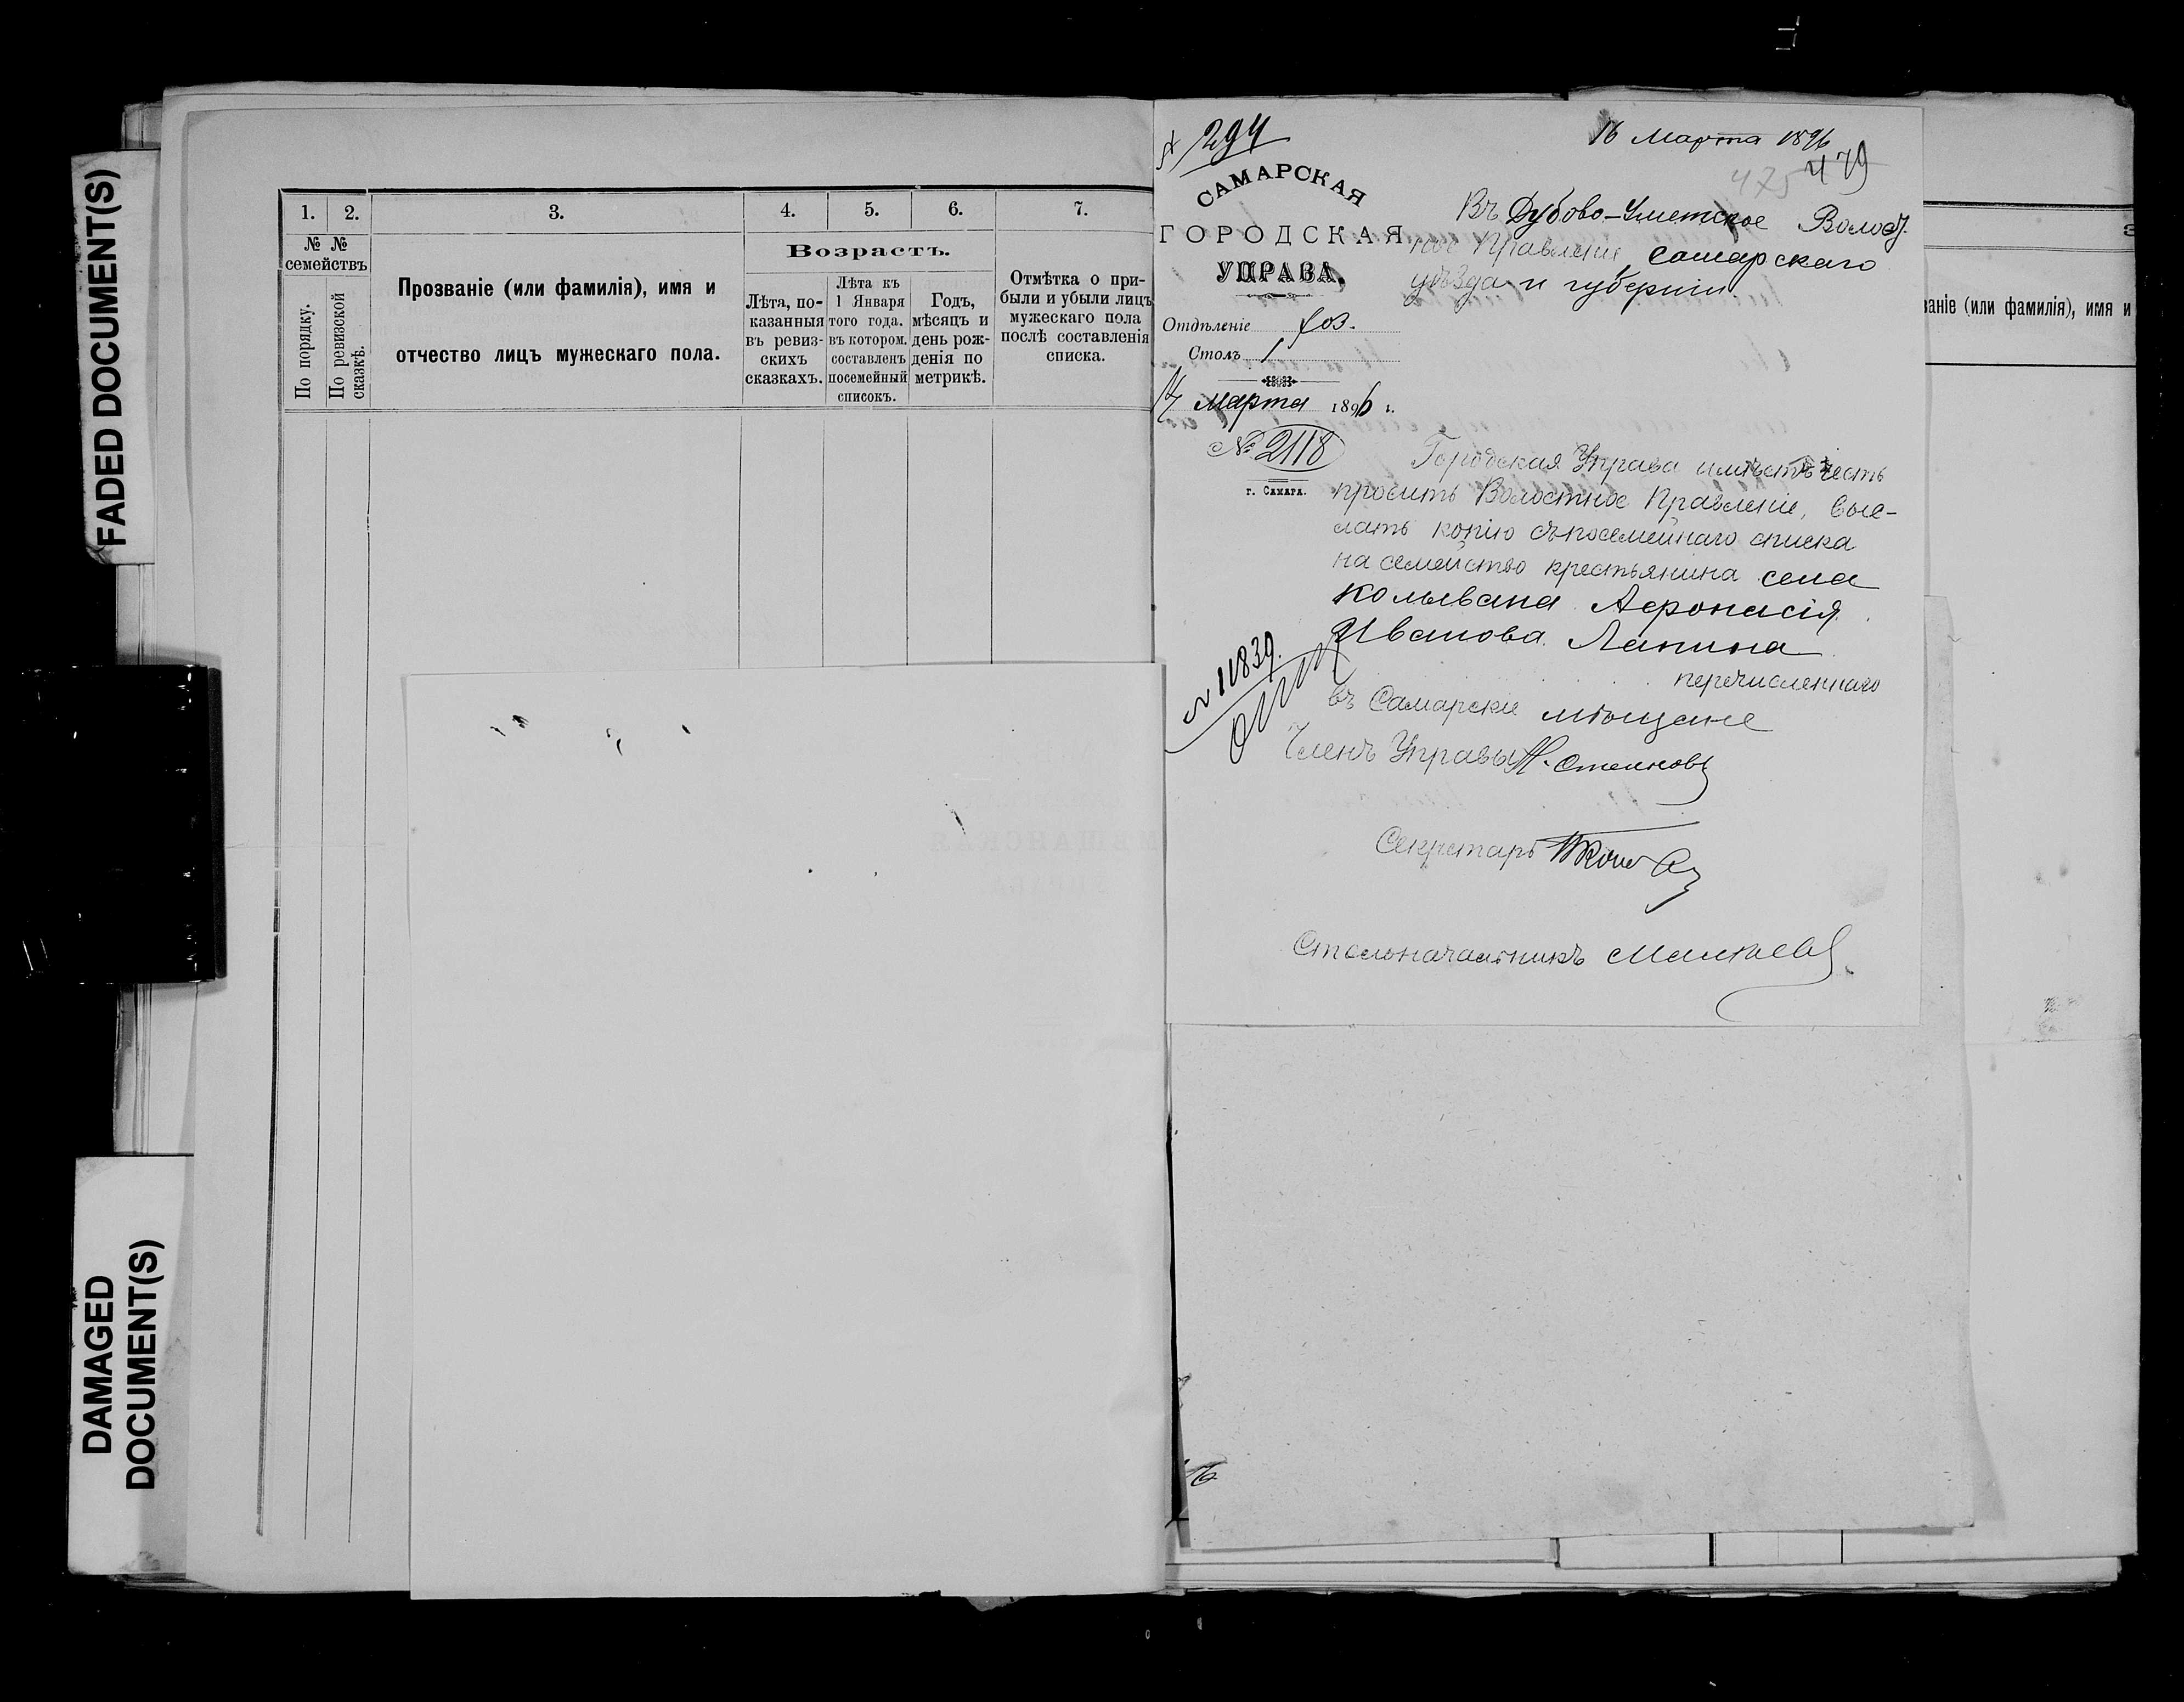 FADED DOCUMENT(S)
DAMAGED
DOCUMENT(S)
1. 2. 3. 4. 5. 6. 7.
№ №
семействъ
По порядку.
По ревизской
сказкѣ.
Прозваніе (или фамилія), имя и
отчество лицъ мужескаго пола.
Возрастъ.
Лѣта, по-
казанныя
въ ревиз-
скихъ
сказкахъ.
Лѣта къ
1 Января
того года.
въ котором.
составленъ
посемейный
списокъ.
Годъ,
мѣсяцъ и
день рож-
денія по
метрикѣ.
Отмѣтка о при-
были и убыли лицъ
мужескаго пола
послѣ составленія
списка.
294
16 Марта 1896
475 479
САМАРСКАЯ
ГОРОДСКАЯ
УПРАВА.
Отдѣленіе Хоз.
Столъ 1
Марта 1896 г.
№ 2118
г. Самара.
Въ Дубово-Уметское Волост.
ное Правленіе, Самарскаго
уѣзда и губерніи.
Городская Управа имѣетъ честь
просить Волостное Правленіе, выс-
лать копію съ посемейнаго списка
на семейство крестьянина села
Колывана Афонасія
Иванова Лапина
перечисленнаго
въ Самарскіе мѣщане
№ 11839.
Членъ Управы
Секретарь
Столоначальникъ
ваніе (или фамилія), имя и